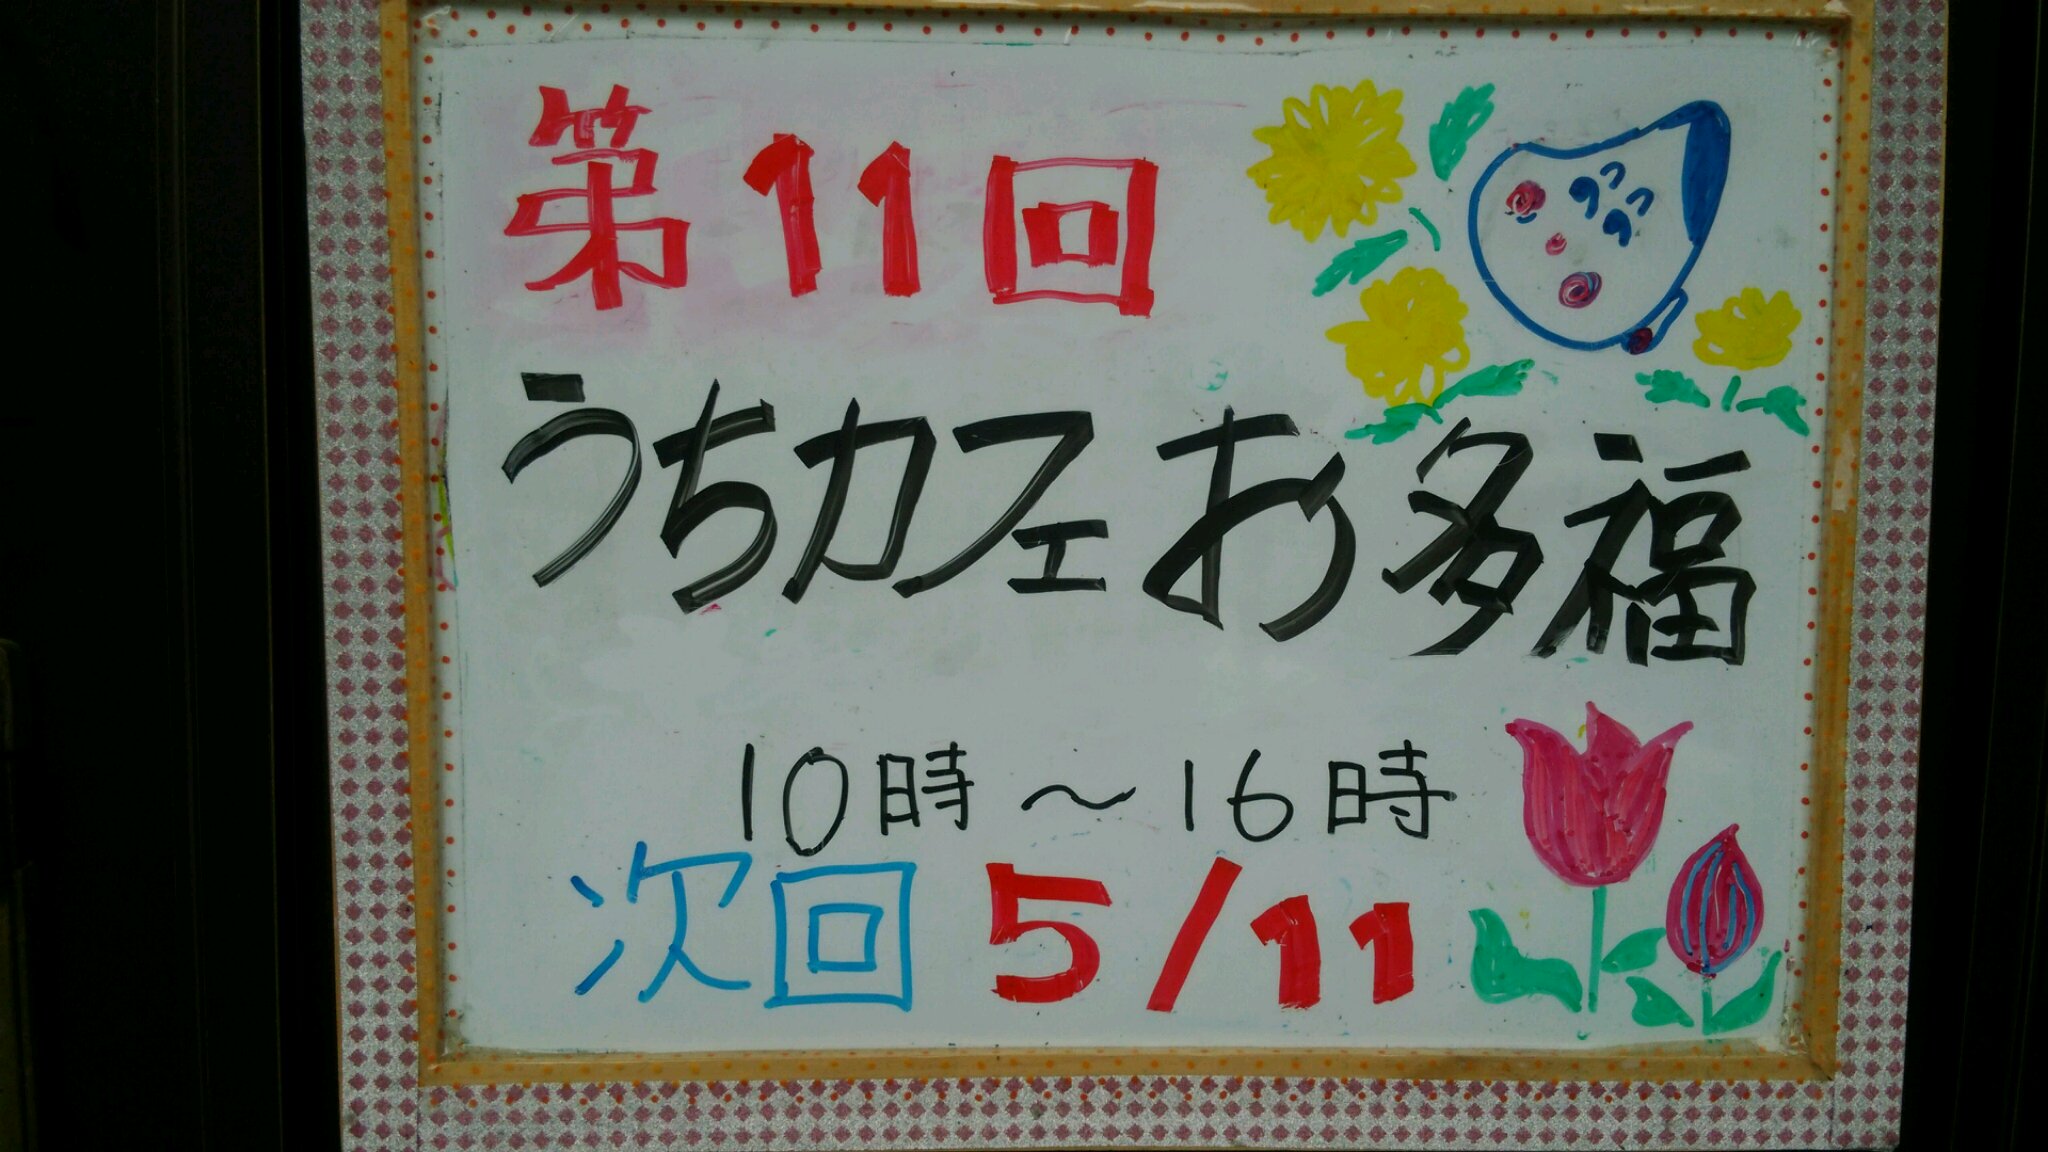 第11回
うちカフェお多福
10時～16時
次回 5/11